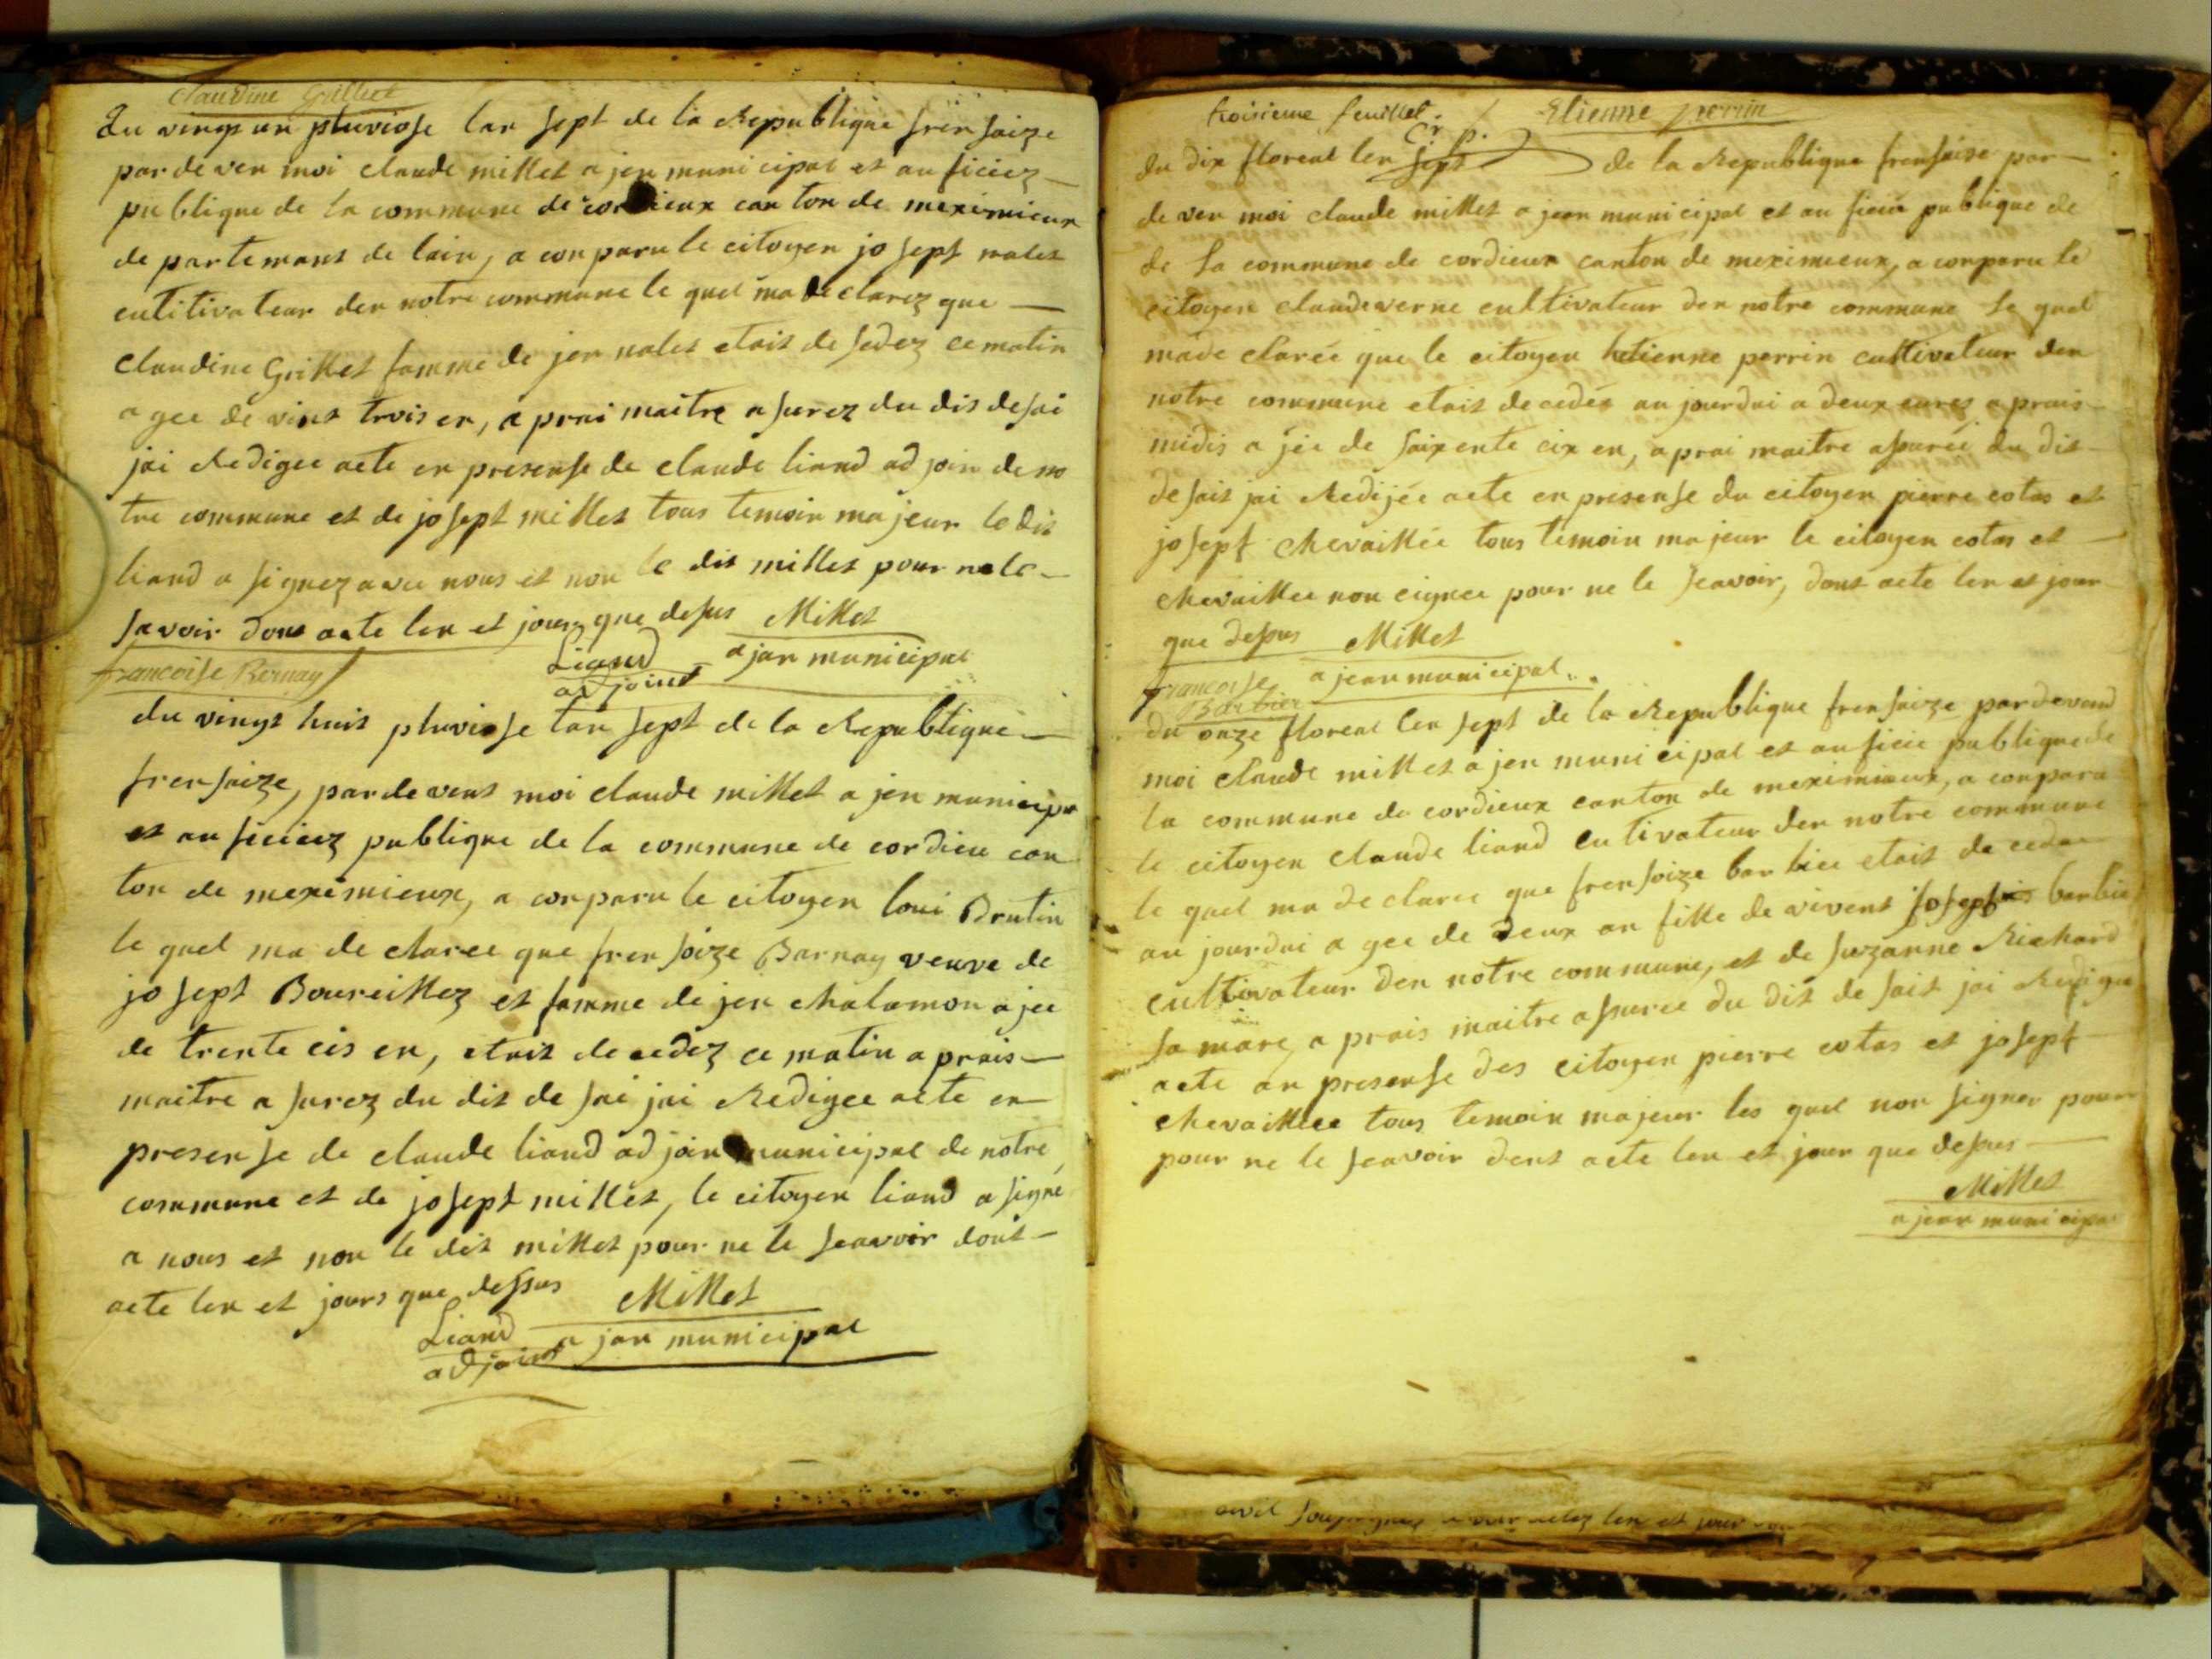 Claudine Grillet
Du vingt un pluviose lan sept de la Republique frensaize
par de ven moi claude millet a jen municipal et au ficiez
publique de la commune de cordieux can ton de meximieux
de partemant de lain, a conparu le citoyen jo sept nalet
cultitivateur den notre commune le quel ma de clarez que
Claudine Grillet famme de jen nalet etait de sedez ce matin
a gee de vint trois en, a prai maitre a surez du dis desai
jai Redigee acte en presense de claude liand ad join de no
tre commune et de josept millet tous temoin majeur le dit
liand a signez avec nous et non le dit millet pour ne le
savoir dont acte len et jour que desus Millet
Liand adjoint
a jan municipal
francoise Bernay
du vingt huit pluviose lan sept de la Republique
frensaize, pardevent moi claude millet a jen municipa
et au ficiez publique de la commune de cordieu can
ton de meximieux, a conparu le citoyen loui Brutin
le quel ma de claree que frensoize Barnay veuve de
jo sept Boureillez et famme de jen chalamon a jee
de trente cis en, etait decedez ce matin a prais
maitre a surez du dit de sai jai Redigee acte en
presense de claude liand ad join municipal de notre
commune et de josept millet, le citoyen liand a signe
a nous et non le dit millet pour ne le seavoir dont
acte len et jours que dessus Millet
Liand adjoint
a jan municipal
troisieme feuillet. Etienne perrin
du dix floreal len sept de la Republique frensaise par
de ven moi claude millet a jean municipal et au ficié publique de
de la commune de cordieux canton de meximieux, a conparu le
citoyen claude verne cultivateur den notre commune le quel
made clarée que le citoyen hetienne perrin cultivateur den
notre commune etait decedée au jourdui a deux eures a prais
midis a jée de saixente cix en, a prai maitre asurée du dit
desait jai Redijée acte en presense du citoyen pierre cotas et
josept chevaillée tous temoin majeur le citoyen cotas et
chevaillee non cignee pour ne le seavoir, dont acte len et jour
que desus Millet
a jean municipal
francoise
Barbier
du onze floreal len sept de la Republique frensaize pardevend
moi claude millet a jen municipal et au ficie publique de
la commune de cordieux canton de meximieux, a conparu
le citoyen claude liand cutivateur den notre commune
le quel ma declaree que frensoize barbiee etait de ceder
au jourdui a gee de deux an fille de vivent josept barbie
cultivateur den notre commune, et de suzanne Richard
sa mare, a prais maitre assuree du dit de sait jai Redigee
acte an presense des citoyen pierre cotas et josept
chevaillee tous temoin majeur les quel non signer pour
pour ne le seavoir dent acte len et jour que desus
Millet
a jean municipa